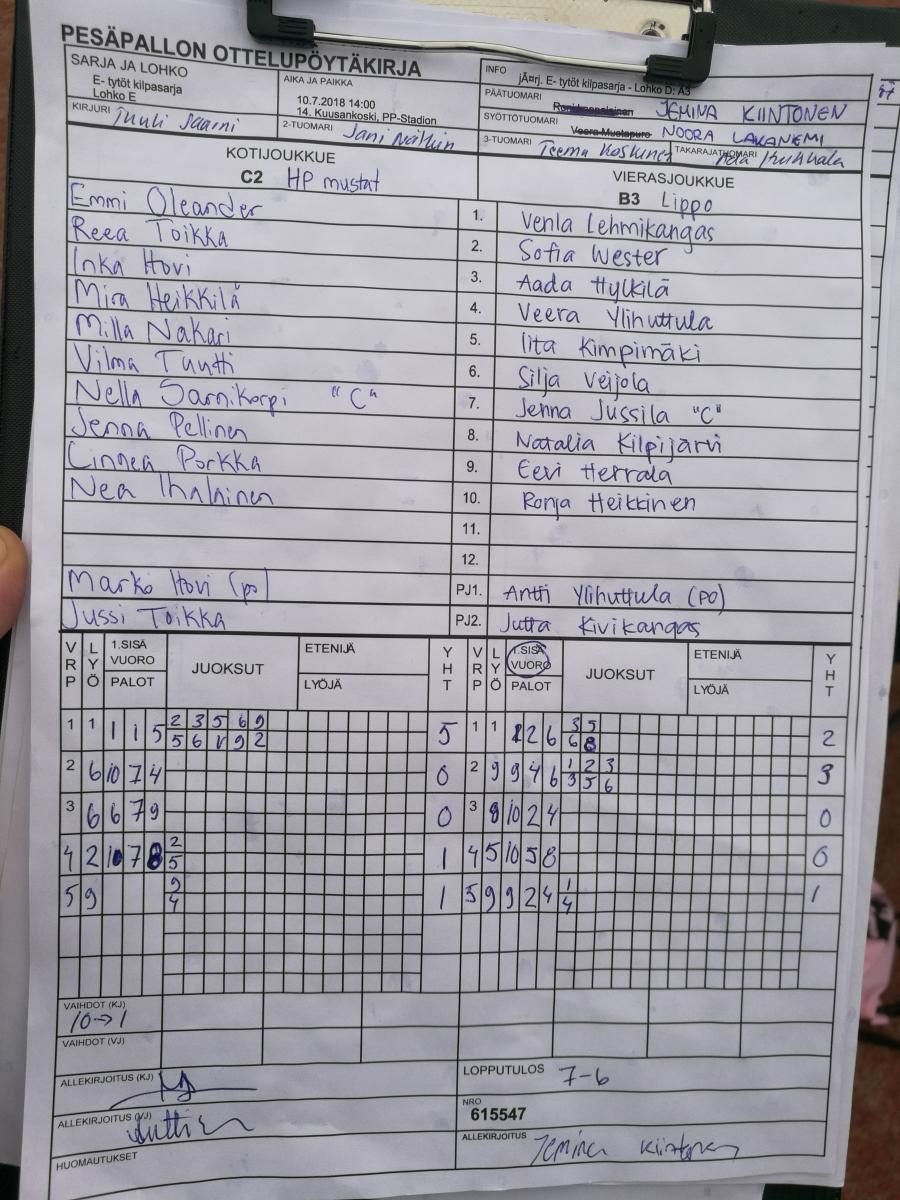 PESÄPALLON OTTELUPÖYTÄKIRJA
SARJA JA LOHKO
E- tytöt kilpasarja
Lohko E
AIKA JA PAIKKA
10.7.2018 14:00
14. Kuusankoski, PP-Stadion
INFO
jÃ¤rj. E- tytöt kilpasarja - Lohko D: A3
PÄÄTUOMARI
JEMINA KIINTONEN
SYÖTTÖTUOMARI
Veera Mustapuro NOORA LAKANIEMI
KIRJURI Tuuli Saarni
2-TUOMARI Jani
3-TUOMARI Teemu Koskinen
TAKARAJATUOMARI
KOTIJOUKKUE
C2 HP mustat
VIERASJOUKKUE
B3 Lippo
Emmi Oleander 1. Venla Lehmikangas
Reea Toikka 2. Sofia Wester
Inka Hovi 3. Aada Hylkilä
Mira Heikkilä 4. Veera Ylihuttula
Milla Nakari 5. Iita Kimpimäki
Vilma Tuutti 6. Silja Veijola
Nella Sarnikorpi "C" 7. Jenna Jussila "C"
Jenna Pellinen 8. Natalia Kilpijärvi
Linnea Porkka 9. Eevi Herrala
Nea Ihalainen 10. Ronja Heikkinen
11.
12.
Marko Hovi (po) PJ1. Antti Ylihuttula (PO)
Jussi Toikka PJ2. Jutta Kivikangas
VRP LYÖ 1.SISÄ VUORO PALOT JUOKSUT ETENIJÄ LYÖJÄ YHT VRP LYÖ 1.SISÄ VUORO PALOT JUOKSUT ETENIJÄ LYÖJÄ YHT
1 1 1 1 5 2/5 3/6 5/V 6/9 9/2 5 1 1 1 2 6 3/6 5/8 2
2 6 10 7 4 0 2 9 9 4 6 1/3 2/5 3/6 3
3 6 6 7 9 0 3 8 10 2 4 0
4 2 10 7 8 2/5 1 4 5 10 5 8 0
5 9 9/4 1 5 9 9 2 4 1/4 1
VAIHDOT (KJ)
10→1
VAIHDOT (VJ)
ALLEKIRJOITUS (KJ)
LOPPUTULOS 7-6
ALLEKIRJOITUS (VJ)
NRO
615547
HUOMAUTUKSET
ALLEKIRJOITUS Jemina Kiintonen